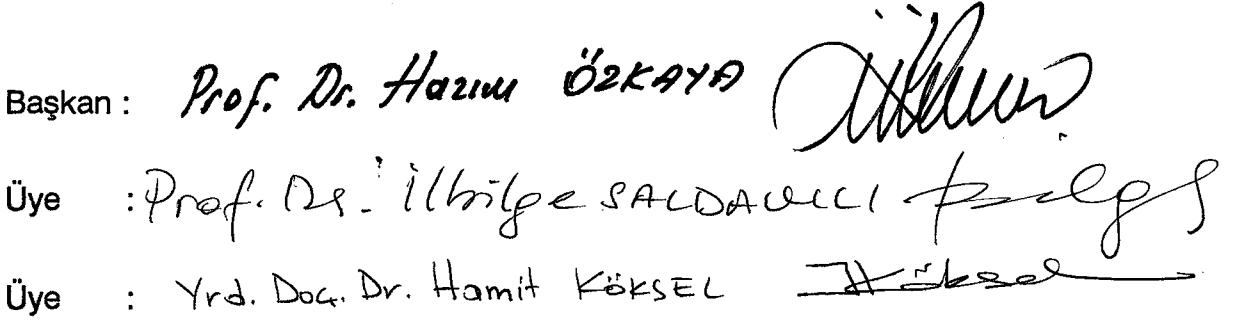 Başkan : Prof. Dr. Hazım ÖZKAYA
Üye : Prof. Dr. İlbilge SALDAMLI
Üye : Yrd. Doç. Dr. Hamit KÖKSEL HKöksel